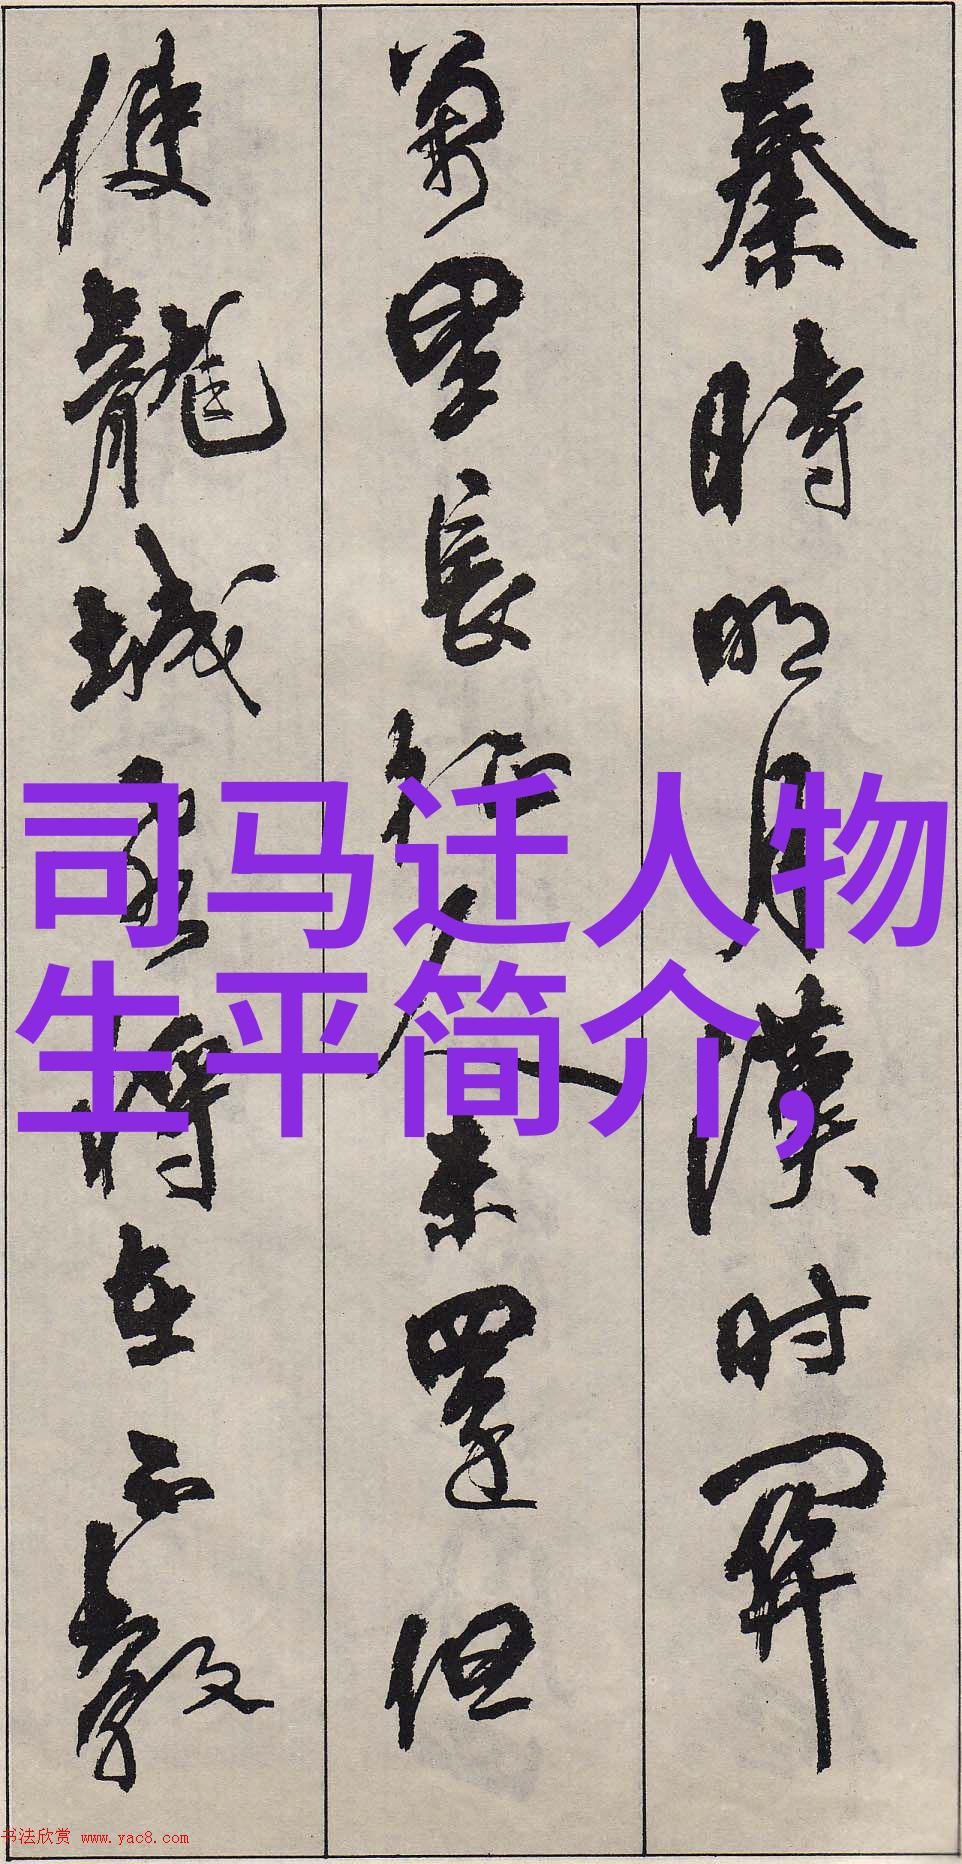 秦時明月漢时關
萬里長征人未還但
使龍城飛將在不教
司马迁人物
生平简介,
书法欣赏 www.yac8.com